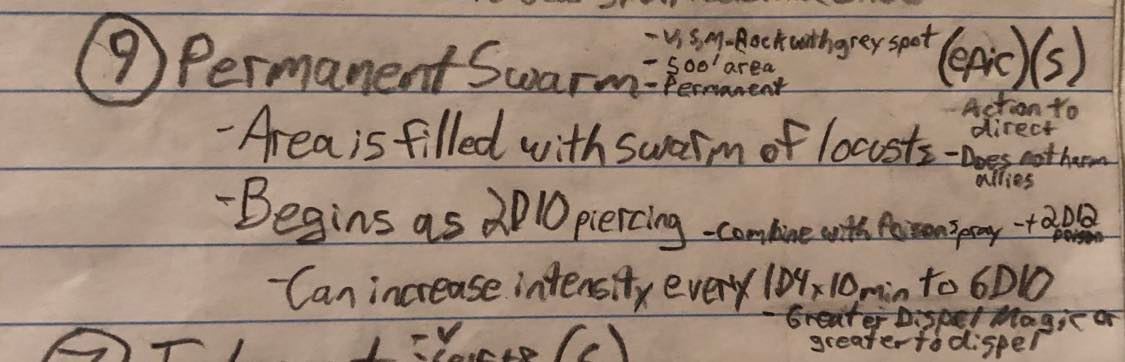 ⑨ Permanent Swarm (epic)(s)
- V, S, M - Rock with grey spot
- 500' area
- Permanent
- Action to direct
- Area is filled with swarm of locusts
- Does not harm allies
- Begins as 2D10 piercing - combine with Poison Spray - +2D12 poison
- Can increase intensity every 1D4x10 min to 6D10
- Greater Dispel Magic or
greater to dispel